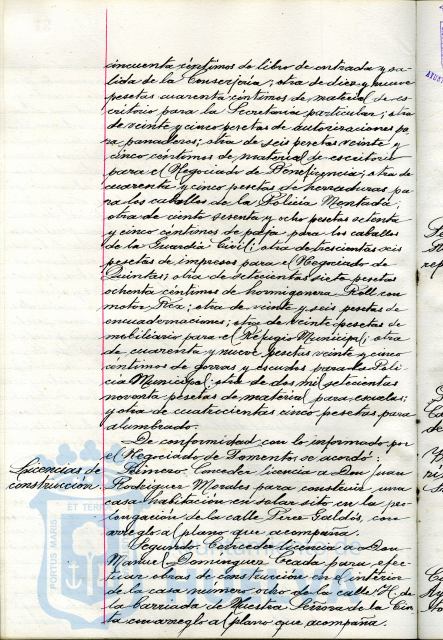 cincuenta céntimos de libro de entrada y sa-
lida de la Conserjería; otra de diez y nueve
pesetas cuarenta céntimos de material de es-
critorio para la Secretaría particular; otra
de veinte y cinco pesetas de autorizaciones pa-
ra panaderos; otra de seis pesetas veinte y
cinco céntimos de material de escritorio
para el Negociado de Beneficencia; otra de
cuarenta y cinco pesetas de herraduras pa-
ra los caballos de la Policía Montada;
otra de ciento sesenta y ocho pesetas setenta
y cinco céntimos de paja para los caballos
de la Guardia Civil; otra de trescientas seis
pesetas de impresos para el Negociado de
Quintas; otra de setecientas siete pesetas
ochenta céntimos de hormigonera Roll con
motor Rex; otra de veinte y seis pesetas de
encuadernaciones; otra de veinte pesetas de
mobiliario para el Refugio Municipal; otra
de cuarenta y nueve pesetas veinte y cinco
céntimos de gorras y escudos para la Poli-
cía Municipal; otra de dos mil setecientas
noventa pesetas de material para escuelas;
y otra de cuatrocientas cinco pesetas para
alumbrado.
De conformidad con lo informado por
el Negociado de Fomento, se acordó:
Licencias de
construcción.
Primero: Conceder licencia a Don Juan
Rodríguez Morales para construir una
casa habitación en solar sito en la pro-
longación de la calle Pérez Galdós, con
arreglo al plano que acompaña.
Segundo: Conceder licencia a Don
Manuel Domínguez Ceada para efec-
tuar obras de construcción en el interior
de la casa número ocho de la calle H. de
la barriada de Nuestra Señora de la Cin-
ta con arreglo al plano que acompaña.
PORTUS MARIS ET TERRAE
Ayuntamiento de